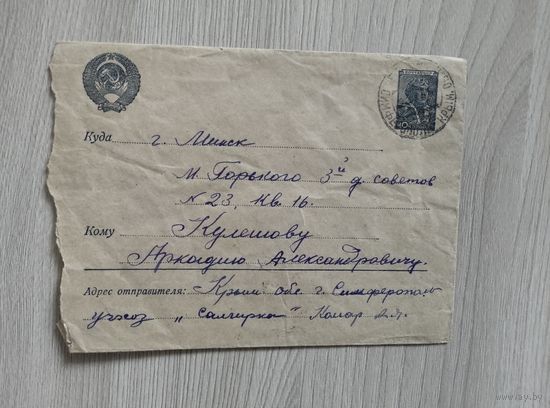 Куда г. Минск
М. Горького 3й д. советов
N 23, Кв. 16.
Кому Кулешову
Аркадию Александровичу.
Адрес отправителя: Крым обл. г. Симферополь
учхоз „Салгирка" Комар
КРЫМ. О
ay.by